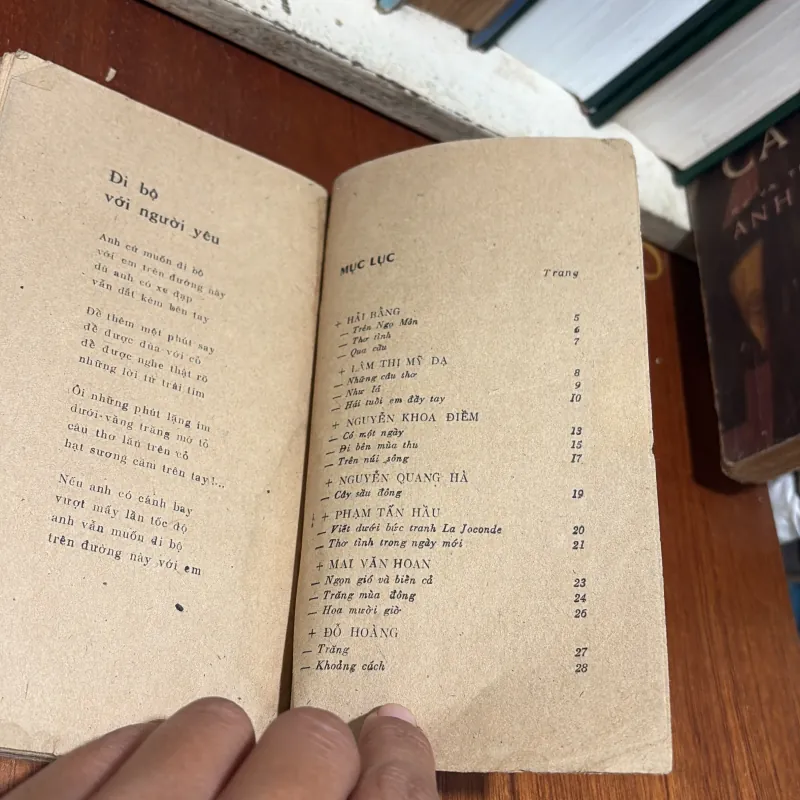 Đi bộ
với người yêu
Anh cứ muốn đi bộ
với em trên đường này
dù anh có xe đạp
vẫn dắt kèm bên tay
Để thêm một phút say
để được đùa với cỏ
để được nghe thật rõ
những lời từ trái tim
Ôi những phút lặng im
dưới vầng trăng mờ tỏ
câu thơ lẩn trên cỏ
hạt sương cầm trên tay!...
Nếu anh có cánh bay
vượt mấy lần tốc độ
anh vẫn muốn đi bộ
trên đường này với em
MỤC LỤC
Trang
+ HẢI BẰNG
— Trên Ngọ Môn 5
— Thơ tình 6
— Qua cầu 7
+ LÂM THỊ MỸ DẠ
— Những câu thơ 8
— Như lá 9
— Hái tuổi em đầy tay 10
+ NGUYỄN KHOA ĐIỀM
— Có một ngày 13
— Đi bên mùa thu 15
— Trên núi sông 17
+ NGUYỄN QUANG HÀ
— Cây sầu đông 19
+ PHẠM TẤN HẦU
— Viết dưới bức tranh La Joconde 20
— Thơ tình trong ngày mới 21
+ MAI VĂN HOAN
— Ngọn gió và biển cả 23
— Trăng mùa đông 24
— Hoa mười giờ 26
+ ĐỖ HOÀNG
— Trăng 27
— Khoảng cách 28
CA
ANH